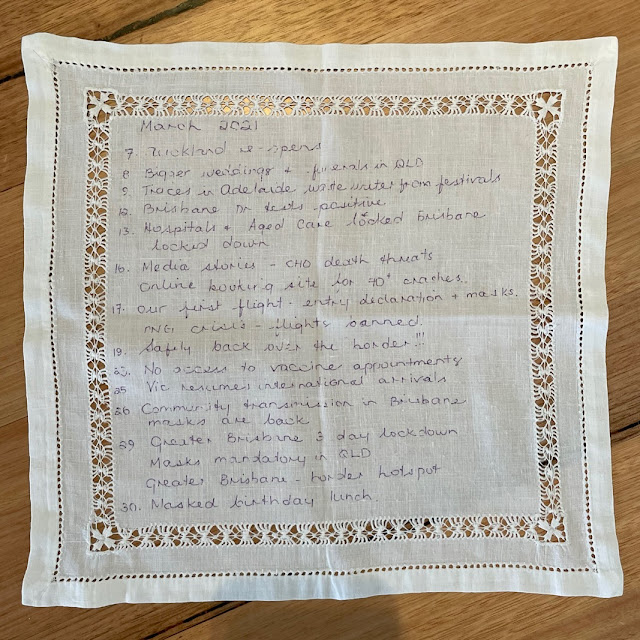 March 2021
7. Auckland re-opens
8 Bigger weddings + funerals in QLD
9. Traces in Adelaide waste water from festivals
12. Brisbane Dr tests positive.
13. Hospitals + Aged Care locked Brisbane
locked down
16. Media stories - CHO death threats
Online booking site for 70+ crashes.
17. Our first flight - entry declaration + masks.
PNG crisis - flights banned
19. Safely back over the border!!!
No access to vaccine appointments
25 Vic resumes international arrivals
26 Community transmission in Brisbane
masks are back
29 Greater Brisbane 3 day lockdown
Masks mandatory in QLD
Greater Brisbane - border hotspot
30. Masked birthday lunch.